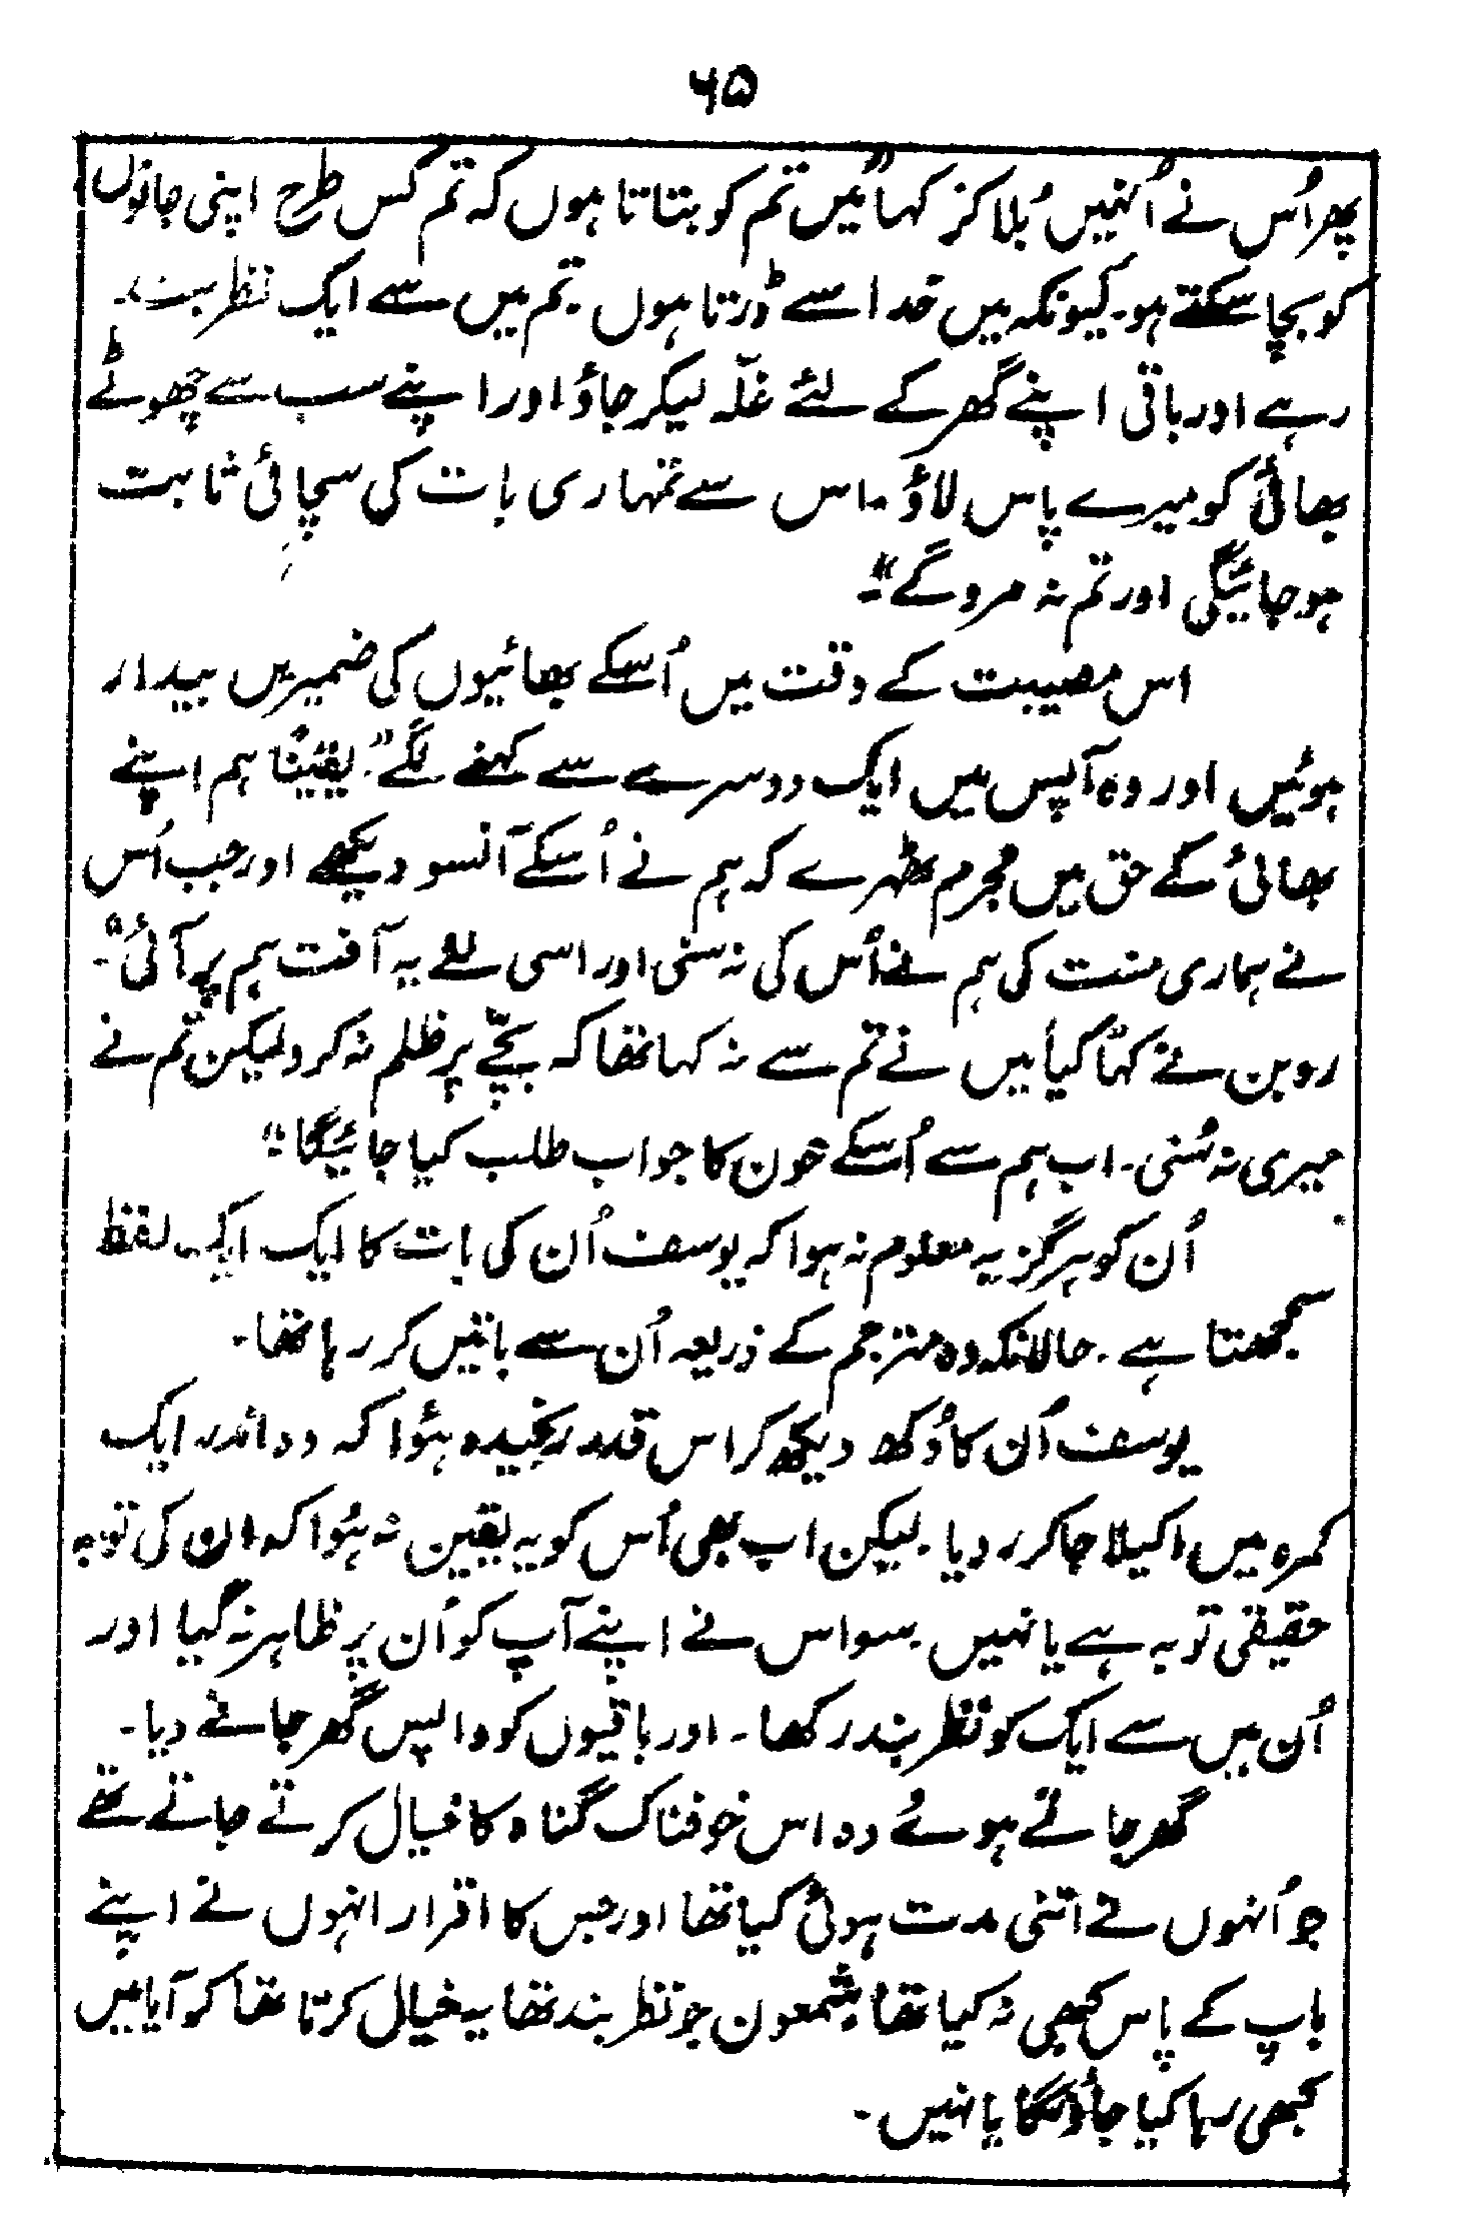 ۶۵
پھر اُس نے اُنہیں بُلا کر کہا "میں تم کو بتاتا ہوں کہ تم کس طرح اپنی جانوں
کو بچا سکتے ہو۔ کیونکہ میں خدا سے ڈرتا ہوں۔ تم میں سے ایک نظر بند
رہے اور باقی اپنے گھر کے لئے غلّہ لیکر جاؤ اور اپنے سب سے چھوٹے
بھائی کو میرے پاس لاؤ۔ اس سے تمہاری بات کی سچائی ثابت
ہو جائیگی اور تم نہ مروگے"۔
اس مصیبت کے وقت میں اُسکے بھائیوں کی ضمیریں بیدار
ہوئیں اور وہ آپس میں ایک دوسرے سے کہنے لگے "یقیناً ہم اپنے
بھائی کے حق میں مجرم ٹھہرے کہ ہم نے اُسکے آنسو دیکھے اور جب اُس
نے ہماری منت کی ہم نے اُس کی نہ سنی اور اسی لئے یہ آفت ہم پر آئی"۔
روبن نے کہا "کیا میں نے تم سے نہ کہا تھا کہ بچّے پر ظلم نہ کرو لیکن تم نے
میری نہ سُنی۔ اب ہم سے اُسکے خون کا جواب طلب کیا جائیگا"
اُن کو ہرگز یہ معلوم نہ ہوا کہ یوسف اُن کی بات کا ایک ایک لفظ
سمجھتا ہے۔ حالانکہ وہ مترجم کے ذریعہ اُن سے باتیں کر رہا تھا۔
یوسف اُن کا دُکھ دیکھ کر اس قدر رنجیدہ ہؤا کہ وہ اندر ایک
کمرہ میں اکیلا جا کر رو دیا۔ لیکن اب بھی اُس کو یہ یقین نہ ہُوا کہ ان کی توبہ
حقیقی توبہ ہے یا نہیں۔ سو اس نے اپنے آپ کو اُن پر ظاہر نہ کیا اور
اُن میں سے ایک کو نظر بند رکھا۔ اور باقیوں کو واپس گھر جانے دیا۔
گھر جاتے ہوئے وہ اس خوفناک گناہ کا خیال کرتے جاتے تھے
جو اُنہوں نے اتنی مدت ہوئی کیا تھا اور جس کا اقرار انہوں نے اپنے
باپ کے پاس کبھی نہ کیا تھا۔ شمعون جو نظر بند تھا یہ خیال کرتا تھا کہ آیا میں
کبھی رہا کیا جاؤنگا یا نہیں۔